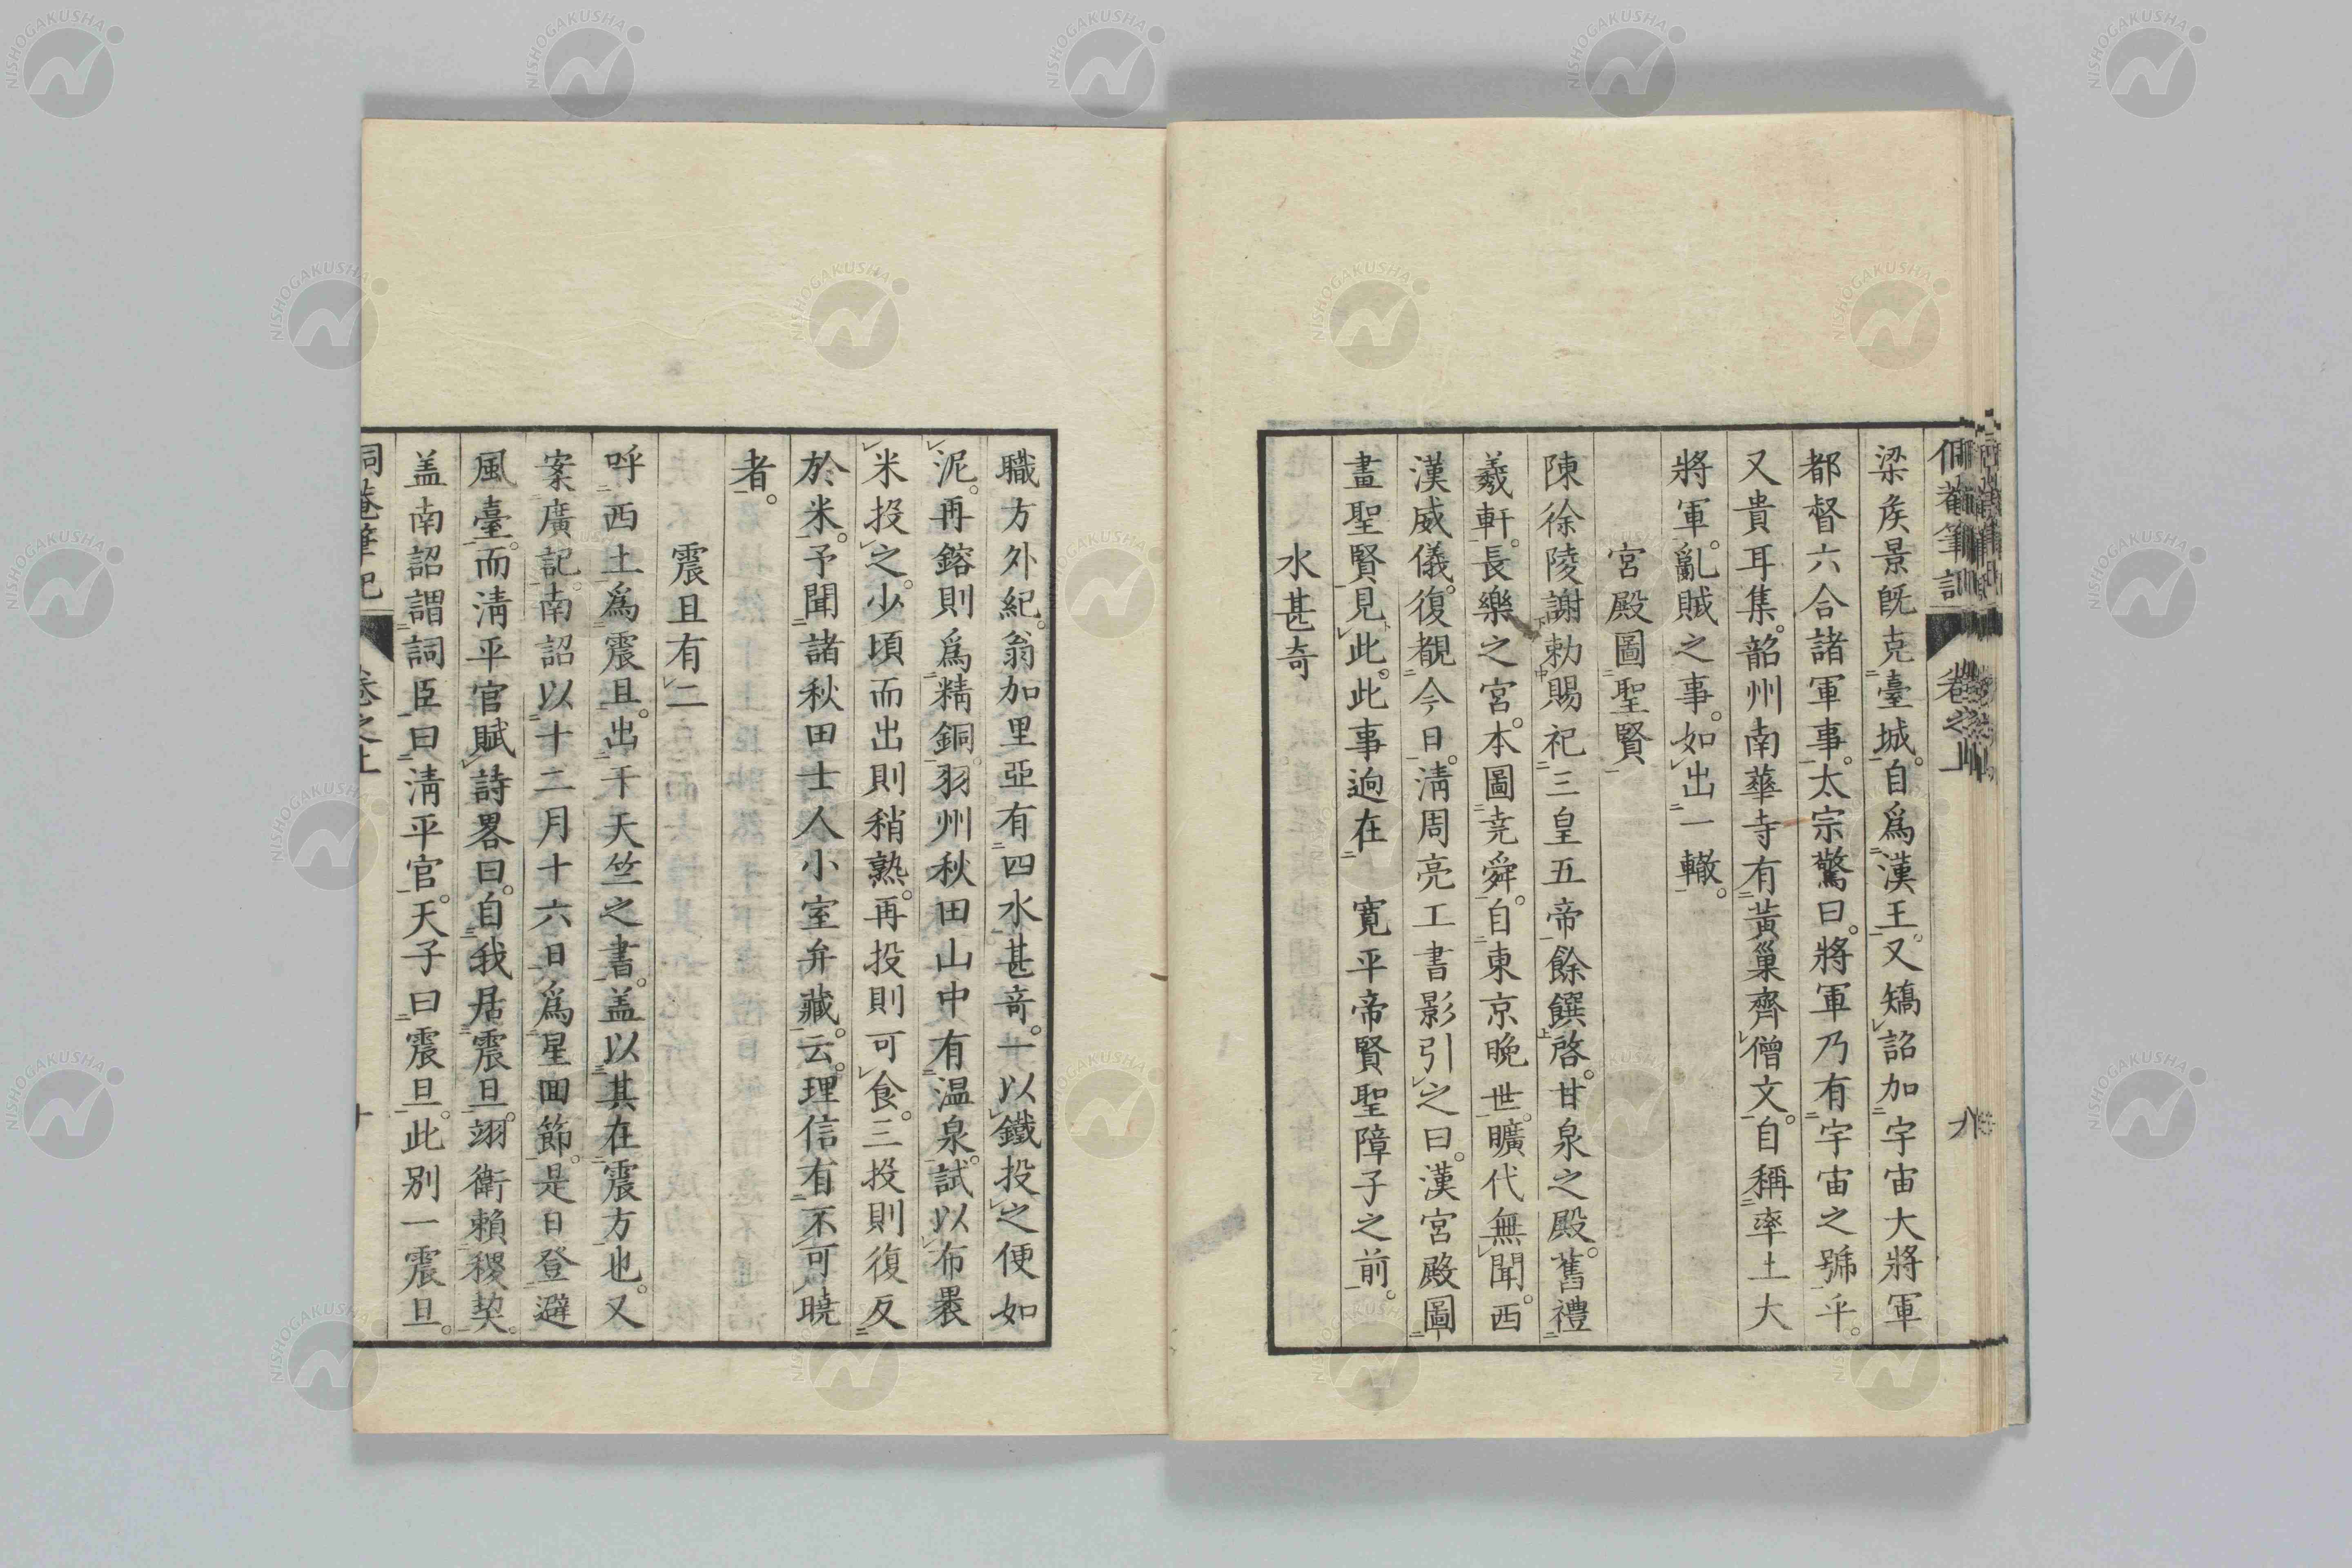 梁矦景旣克臺城。自爲漢王。又矯詔加宇宙大將軍
都督六合諸軍事。太宗驚曰。將軍乃有宇宙之號乎。
又貴耳集。韶州南華寺有黃巢齊僧文。自稱率土大
將軍。亂賊之事。如出一轍。
宮殿圖聖賢
陳徐陵謝勅賜祀三皇五帝餘饌啓。甘泉之殿。舊禮
羲軒。長樂之宮。本圖堯舜。自東京晚世。曠代無聞。西
漢威儀。復覩今日。淸周亮工書影引之曰。漢宮殿圖
畫聖賢見此。此事逈在 寛平帝賢聖障子之前。
水甚奇
職方外紀。翁加里亞有四水甚竒。一以鐵投之便如
泥。再鎔則爲精銅。羽州秋田山中有温泉。試以布褁
米投之。少頃而出則稍熟。再投則可食。三投則復反
於米。予聞諸秋田士人小室弁藏。云。理信有不可曉
者。
震旦有二
呼西土爲震旦。出于天竺之書。盖以其在震方也。又
案廣記。南詔以十二月十六日爲星囬節。是日登避
風臺。而淸平官賦詩畧曰。自我居震旦。翊衛頼稷契。
盖南詔謂詞臣曰淸平官。天子曰震旦。此別一震旦。